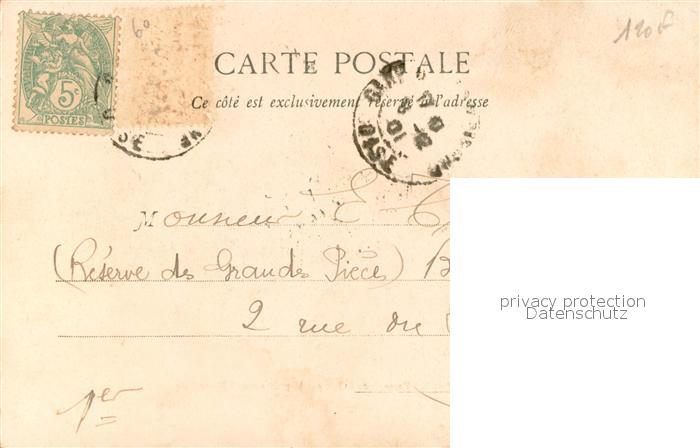 120F
60
5c
POSTES
CARTE POSTALE
Ce côté est exclusivement réservé à l'adresse
Monsieur E
(Réserve des Grandes Pièces) B
2 rue du
1er
privacy protection
Datenschutz